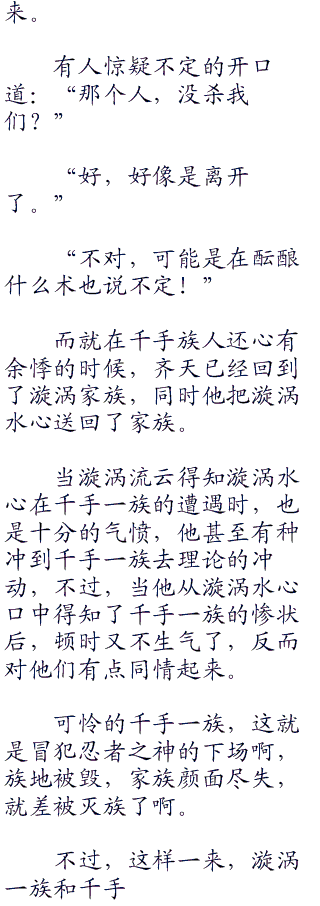 来。
有人惊疑不定的开口
道：“那个人，没杀我
们？”
“好，好像是离开
了。”
“不对，可能是在酝酿
什么术也说不定！”
而就在千手族人还心有
余悸的时候，齐天已经回到
了漩涡家族，同时他把漩涡
水心送回了家族。
当漩涡流云得知漩涡水
心在千手一族的遭遇时，也
是十分的气愤，他甚至有种
冲到千手一族去理论的冲
动，不过，当他从漩涡水心
口中得知了千手一族的惨状
后，顿时又不生气了，反而
对他们有点同情起来。
可怜的千手一族，这就
是冒犯忍者之神的下场啊，
族地被毁，家族颜面尽失，
就差被灭族了啊。
不过，这样一来，漩涡
一族和千手